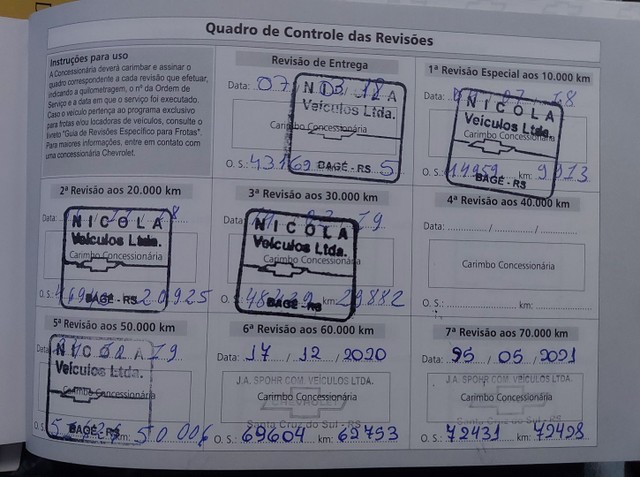 Quadro de Controle das Revisões
Instruções para uso
A Concessionária deverá carimbar e assinar o
quadro correspondente a cada revisão que efetuar,
indicando a quilometragem, o nº da Ordem de
Serviço e a data em que o serviço foi executado.
Caso o veículo pertença ao programa exclusivo
para frotas e/ou locadoras de veículos, consulte o
livreto "Guia de Revisões Específico para Frotas".
Para maiores informações, entre em contato com
uma concessionária Chevrolet.
Revisão de Entrega
Data: 07 03 18
NICOLA
Veículos Ltda.
Carimbo Concessionária
BAGÉ - RS
O. S.: 43169 5
1ª Revisão Especial aos 10.000 km
07 18
NICOLA
Veículos Ltda.
Carimbo Concessionária
BAGÉ - RS
O. S.: 44959 km: 9913
2ª Revisão aos 20.000 km
Data: 18
NICOLA
Veículos Ltda.
Carimbo Concessionária
BAGÉ - RS
O. S.: 20925
3ª Revisão aos 30.000 km
Data 19
NICOLA
Veículos Ltda.
Carimbo Concessionária
BAGÉ - RS
O. S.: km: 29882
4ª Revisão aos 40.000 km
Data: / /
Carimbo Concessionária
O. S.: km:
5ª Revisão aos 50.000 km
19
NICOLA
Veículos Ltda.
Carimbo Concessionária
BAGÉ - RS
O. S.: km: 50006
6ª Revisão aos 60.000 km
Data: 17 / 12 / 2020
J.A. SPOHR COM VEÍCULOS LTDA.
Carimbo Concessionária
CHEVROLET
Santa Cruz do Sul - RS
O. S.: 69604 km: 62753
7ª Revisão aos 70.000 km
Data: 25 / 05 / 2021
J.A. SPOHR COM VEÍCULOS LTDA.
Carimbo Concessionária
Santa Cruz do Sul - RS
O. S.: 72431 km: 72428